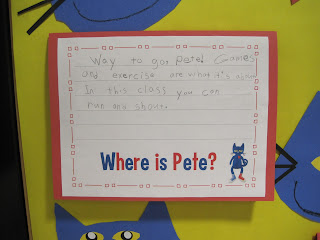 Way to go, Pete! Games
and exercise are what it's
In this class you can
run and shout.
Where is Pete?